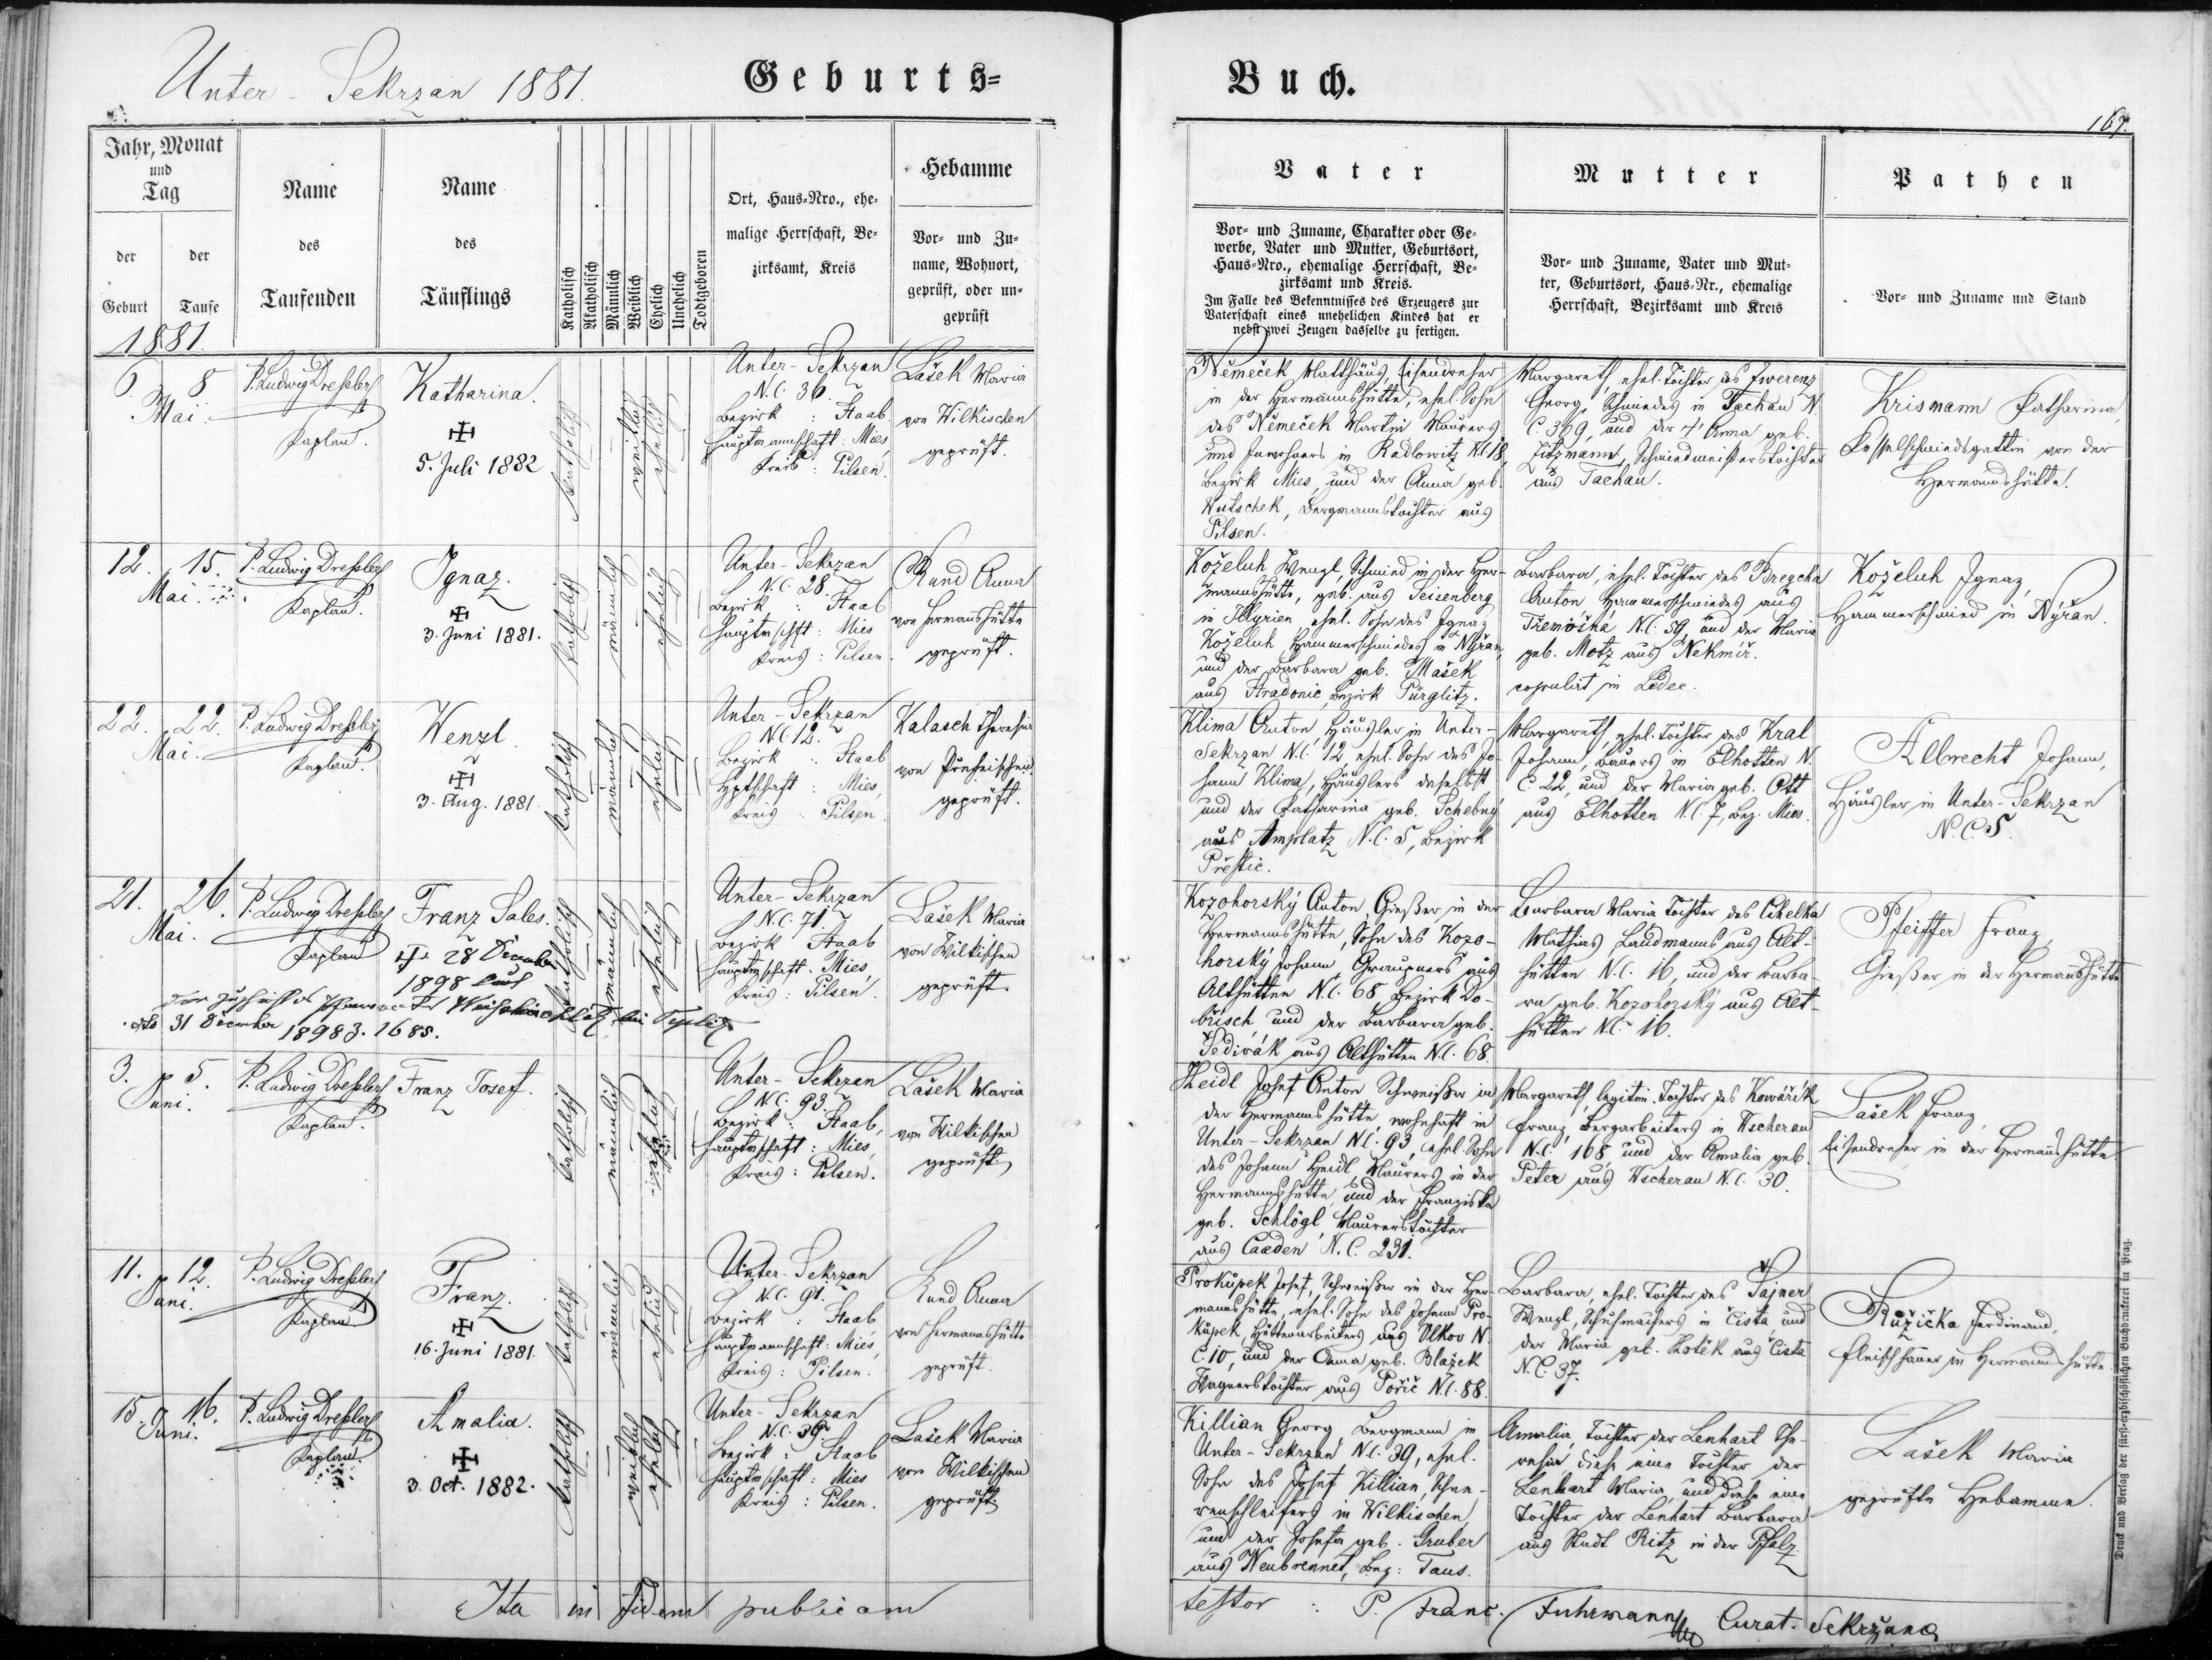 Unter-Sekrzan 1881.
Geburts=
Buch.
167.
Jahr, Monat
und
Tag
der
Geburt
der
Taufe
Name
des
Taufenden
Name
des
Täuflings
Katholisch
Akatholisch
Männlich
Weiblich
Ehelich
Unehelich
Todtgeboren
Ort, Haus-Nro., ehe-
malige Herrschaft, Be-
zirksamt, Kreis
Hebamme
Vor- und Zu-
name, Wohnort,
geprüft, oder un-
geprüft
Vater
Vor- und Zuname, Charakter oder Ge-
werbe, Vater und Mutter, Geburtsort,
Haus-Nro., ehemalige Herrschaft, Be-
zirksamt und Kreis.
Im Falle des Bekenntnisses des Erzeugers zur
Vaterschaft eines unehelichen Kindes hat er
nebst zwei Zeugen dasselbe zu fertigen.
Mutter
Vor- und Zuname, Vater und Mut-
ter, Geburtsort, Haus-Nr., ehemalige
Herrschaft, Bezirksamt und Kreis
Pathen
Vor- und Zuname und Stand
1881.
6. 8
Mai.
P. Ludwig Dressler
Kaplan.
Katharina.
5. Juli 1882
katholisch
weiblich
ehelich
Unter-Sekrzan
N.C. 36.
Bezirk : Staab
Hauptmannschaft: Mies,
Kreis : Pilsen.
Lašek Maria
von Wilkischen
geprüft.
Němeček Matthäus, Eisendreher
in der Hermannshütte, ehel. Sohn
des Němeček Martin Maurers
und Inwohners in Radlowitz N.C. 18,
Bezirk Mies, und der Anna geb.
Wutschek, Bergmannstochter aus
Pilsen.
Margareth, ehel. Tochter des Zwerenz
Georg, Schmiedes in Tachau N.
C. 399, und der † Anna geb.
Fitzmann, Schmiedmeisterstochter
aus Tachau.
Krismann Katharina,
Kesselschmiedsgattin von der
Hermannshütte.
12. 15.
Mai.
P. Ludwig Dressler
Kaplan.
Ignaz.
3. Juni 1881.
katholisch
männlich
ehelich
Unter-Sekrzan
N.C. 28.
Bezirk : Staab
Hauptmschft: Mies
Kreis : Pilsen.
Rund Anna
von Hermannshütte
geprüft.
Koželuh Wenzl, Schmied in der Her-
mannshütte, geb. aus Seisenberg
in Illyrien ehel. Sohn des Ignaz
Koželuh Hammerschmiedes in Nýřan,
und der Barbara geb. Mašek
aus Hradonic, Bezirk Pürglitz.
Barbara, ehel. Tochter des Bregcha
Anton Hammerschmiedes aus
Třemošna N.C. 59, und der Maria
geb. Motz aus Nekmíř.
copulirt in Ledec.
Koželuh Ignaz,
Hammerschmied in Nýřan.
22. 22.
Mai.
P. Ludwig Dressler
Kaplan.
Wenzl
3. Aug. 1881.
katholisch
männlich
ehelich
Unter-Sekrzan
N.C. 12.
Bezirk : Staab
Hptschaft : Mies,
Kreis : Pilsen.
Kalasch Theresia
von
geprüft.
Klima Anton, Häusler in Unter-
Sekrzan N.C. 12, ehel. Sohn des Jo-
hann Klima, Häuslers daselbst
und der Katharina geb. Schebny
aus Amplatz N.C. 5, Bezirk
Přestic.
Margareth, ehel. Tochter des Kral
Johann, Bauers in Elhotten N.
C. 22, und der Maria geb. Ott
aus Elhotten N.C. 7, Bez. Mies.
Albrecht Johann,
Häusler in Unter-Sekrzan
N.C. 5.
21. 26.
Mai.
P. Ludwig Dressler
Kaplan
Franz Sales.
28 December
1898 laut
Zuschrift des Pfarramtes bei Teplitz
dto 31 December 1898 Z. 1685.
katholisch
männlich
ehelich
Unter-Sekrzan
N.C. 71.
Bezirk Staab
Hauptmschaft. Mies,
Kreis: Pilsen.
Lašek Maria
von Wilkischen
geprüft.
Kozohorský Anton, Giesser in der
Hermannshütte, Sohn des Kozo-
horský Johann Graupners aus
Althütten N.C. 68, Bezirk Do-
břisch, und der Barbara geb.
Sedivák aus Althütten N.C. 68.
Barbara Maria Tochter des Cihelka
Mathias Landmanns aus Alt-
hütten N.C. 16, und der Barba-
ra geb. Kozohorský aus Alt-
hütten N.C. 16.
Pfeiffer Franz,
Giesser in der Hermannshütte
3. 5.
Juni.
P. Ludwig Dressler
Kaplan.
Franz Josef.
katholisch
männlich
ehelich
Unter-Sekrzan
N.C. 93.
Bezirk : Staab,
Hauptmschaft : Mies,
Kreis : Pilsen.
Lašek Maria
von Wilkischen
geprüft.
Heidl Josef Anton Schweisser in
der Hermannshütte, wohnhaft in
Unter-Sekrzan N.C. 93, ehel. Sohn
des Johann Heidl, Maurers in der
Hermannshütte, und der Franziska
geb. Schlögl, Maurerstochter
aus Caaden N.C. 231.
Margareth, legitim. Tochter des Kowářík
Franz, Bergarbeiters in Wscherau
N.C. 168 und der Amalia geb.
Peter aus Wscherau N.C. 30.
Lašek Franz
Eisendreher in der Hermannshütte
11. 12.
Juni.
P. Ludwig Dressler
Kaplan
Franz.
16. Juni 1881.
katholisch
männlich
ehelich
Unter-Sekrzan
N.C. 91.
Bezirk : Staab
Hauptmannschaft: Mies,
Kreis : Pilsen.
Rund Anna
von Hermannshütte
geprüft.
Prokůpek Josef, Schweisser in der Her-
mannshütte, ehel. Sohn des Johann Pro-
kůpek, Hüttenarbeiters aus Vlkov N.
C. 10, und der Anna geb. Blažek
Wagnerstochter aus Pořič N.C. 88.
Barbara, ehel. Tochter des Šajner
Wenzl, Schuhmachers in Čista und
der Maria geb. Kotěk aus Čista
N.C. 37.
Růžička Ferdinand,
Fleischhauer in Hermannshütte
15. 16.
Juni.
P. Ludwig Dressler
Kaplan.
Amalia.
3. Oct. 1882.
katholisch
weiblich
ehelich
Unter-Sekrzan
N.C. 39.
Bezirk : Staab
Hauptmschaft : Mies
Kreis : Pilsen.
Lašek Maria
von Wilkischen
geprüft.
Killian Georg, Bergmann in
Unter-Sekrzan N.C. 39, ehel.
Sohn des Josef Killian, Schee-
renschleifers in Wilkischen,
und der Josefa geb. Gruber
aus Neubrennet, Bez: Taus.
Amalia, Tochter der Lenhart The-
resia, diese eine Tochter der
Lenhart Maria, und diese eine
Tochter der Lenhart Barbara
aus Stadt Ritz in der Pfalz.
Lašek Maria
geprüfte Hebamme.
Ita in fidem publicam
testor : P. Franc. Fuhrmann Curat. Sekržana
Druck und Verlag der fürst-erzbischöflichen Buchdruckerei in Prag.